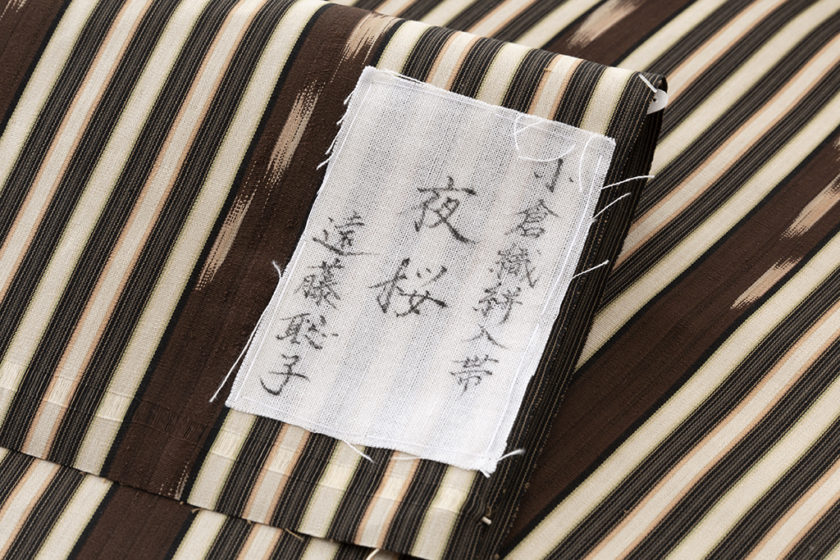 小倉織絣入帯
夜桜
遠藤聡子